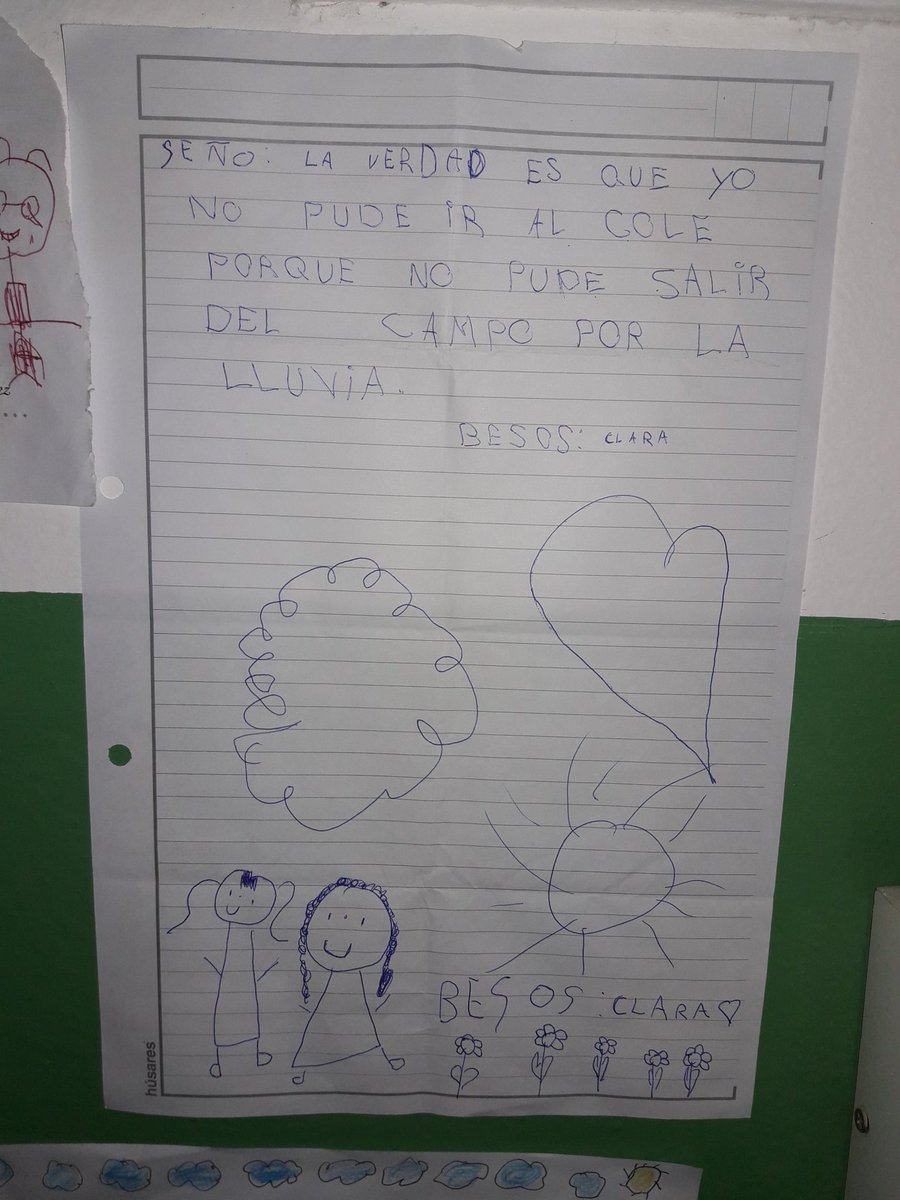 SEÑO: LA VERDAD ES QUE YO
NO PUDE IR AL COLE
PORQUE NO PUDE SALIR
DEL CAMPO POR LA
LLUVIA.
BESOS: CLARA
BESOS: CLARA
húsares